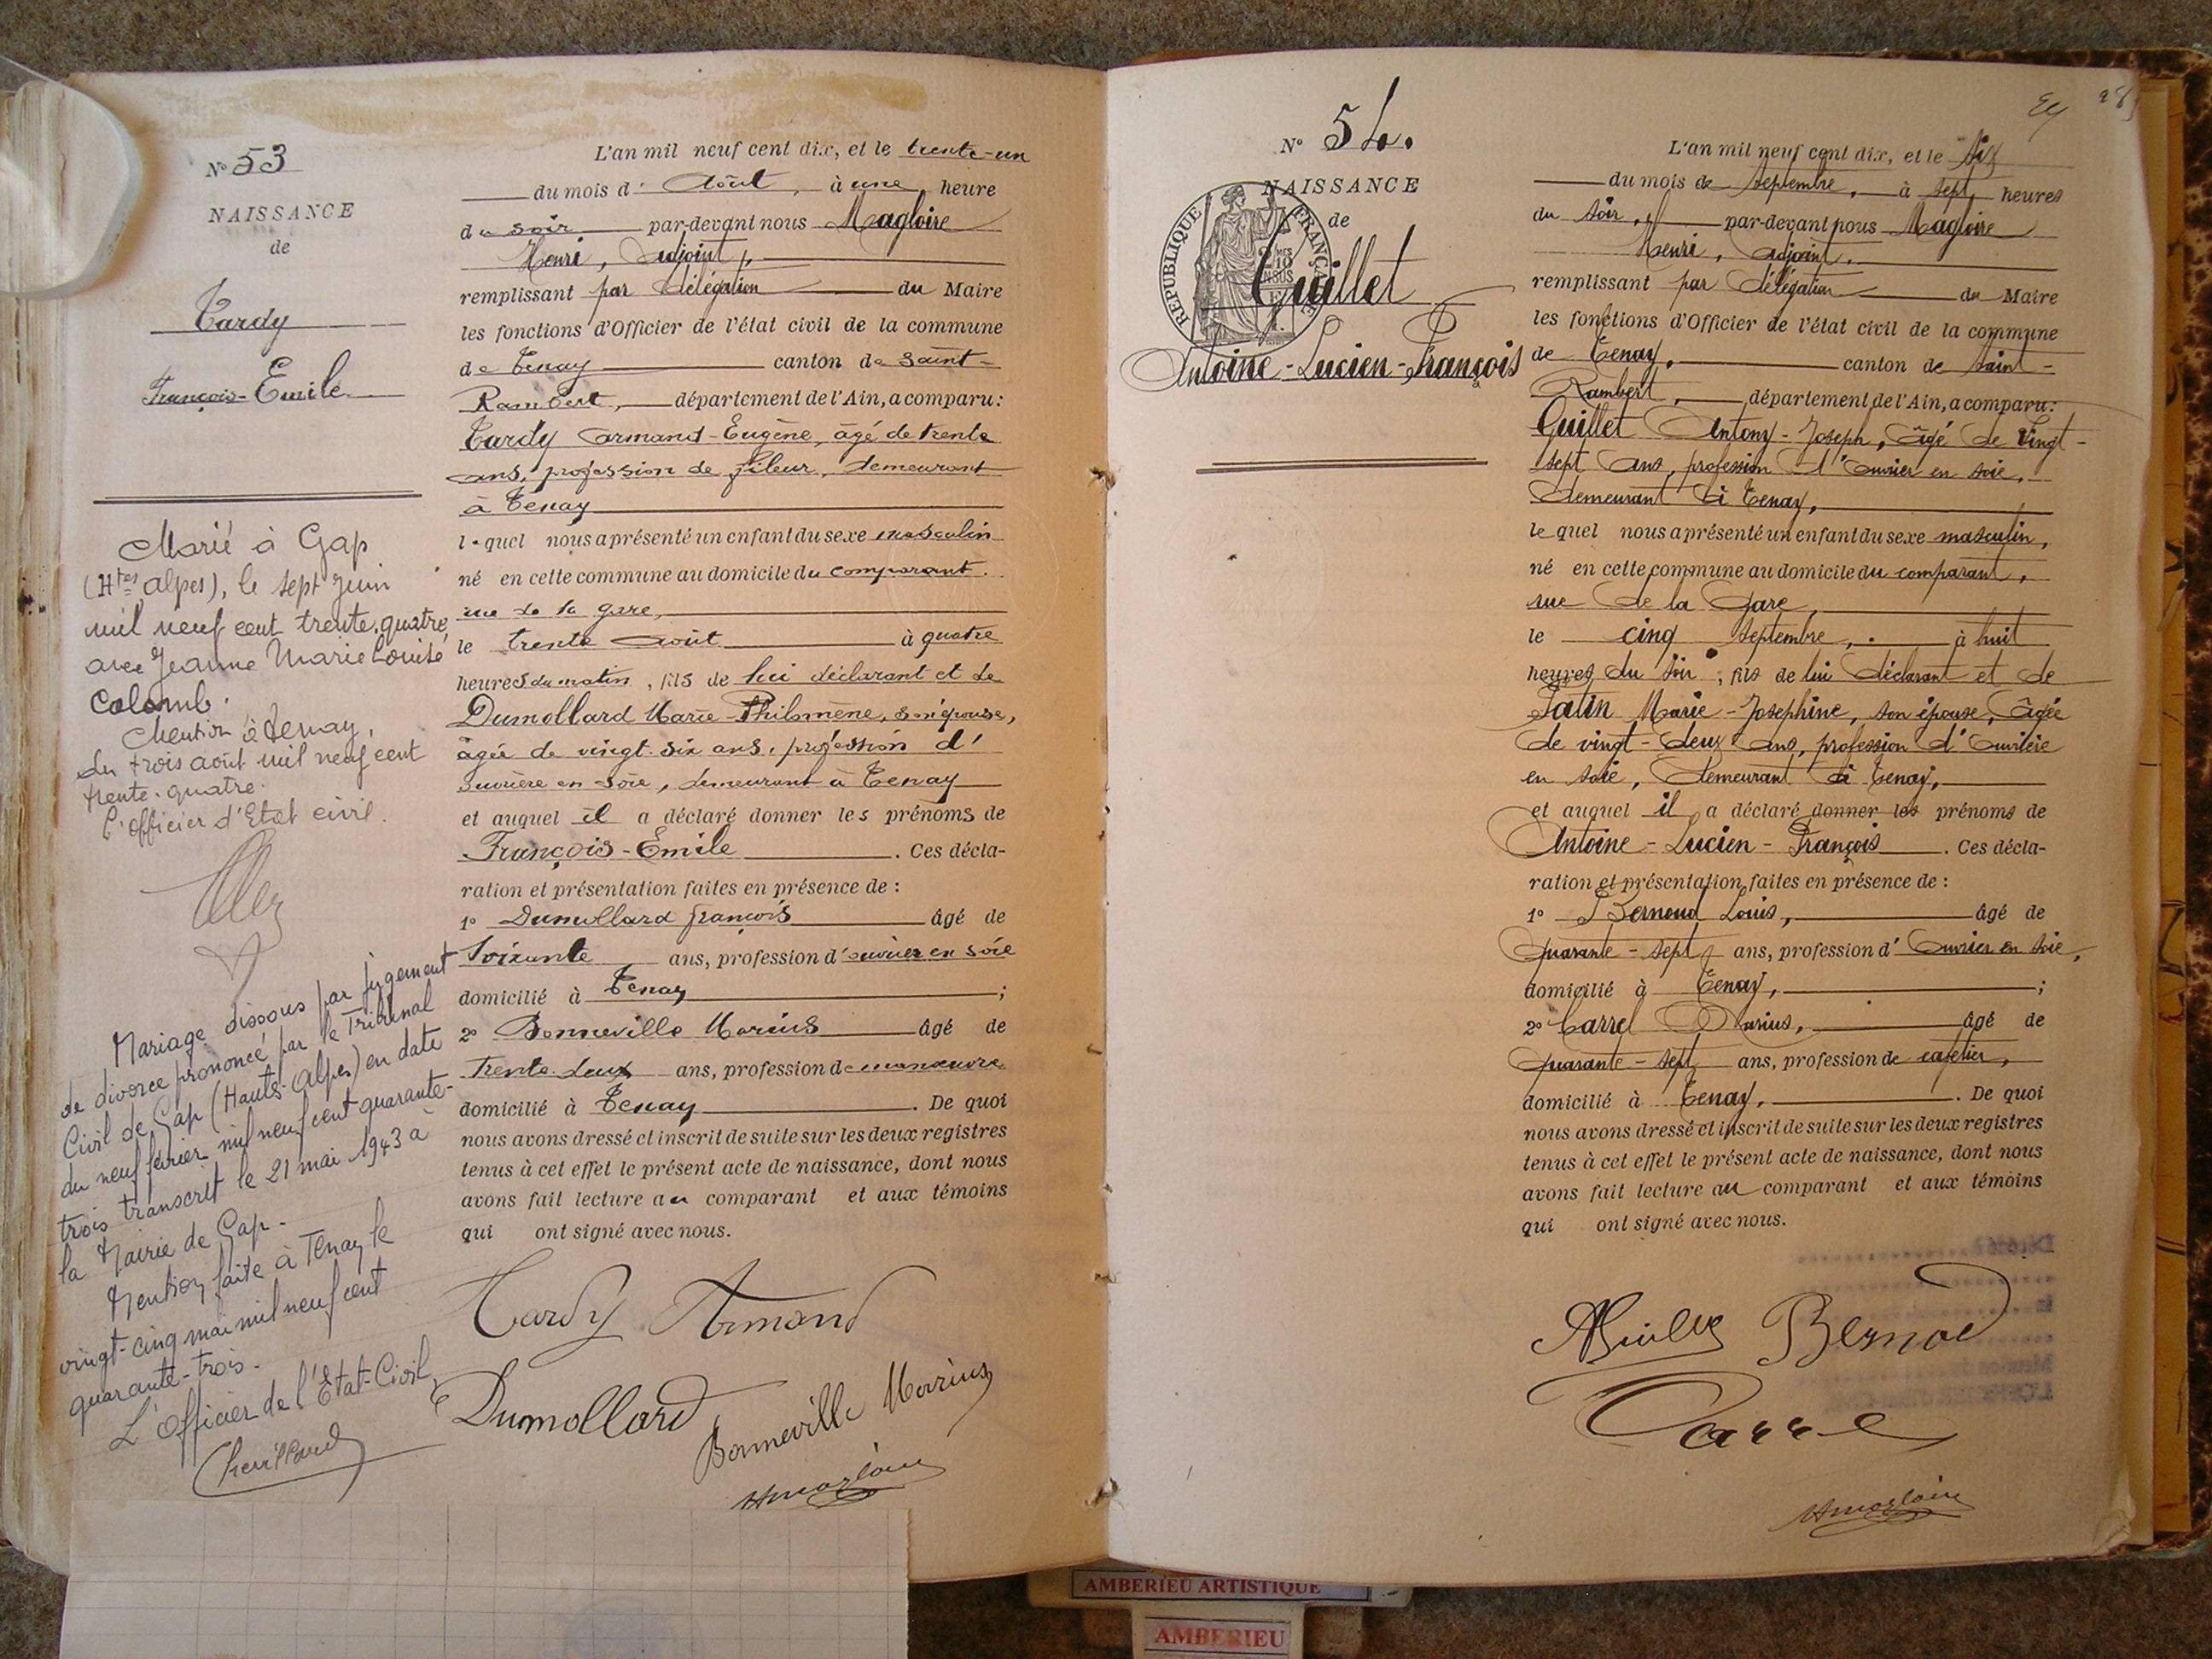 N° 53
NAISSANCE
de
Tardy
François-Emile
Marié à Gap
(Htes Alpes), le sept juin
mil neuf cent trente-quatre
avec Jeanne Marie Louise
Colomb.
Mention à Tenay,
du trois août mil neuf cent
trente-quatre.
L'Officier d'Etat civil.
Mariage dissous par jugement
de divorce prononcé par le Tribunal
Civil de Gap (Hautes-Alpes) en date
du neuf février mil neuf cent quarante-
trois transcrit le 21 mai 1943 à
la Mairie de Gap.-
Mention faite à Tenay le
vingt-cinq mai mil neuf cent
quarante-trois.-
L'Officier de l'Etat-Civil,
L'an mil neuf cent dix, et le trente-un
du mois d'Août, à une heure
du soir par-devant nous Magloire
Henri, Adjoint,
remplissant par délégation du Maire
les fonctions d'Officier de l'état civil de la commune
de Tenay canton de Saint-
Rambert, département de l'Ain, a comparu:
Tardy Armand-Eugène, âgé de trente
ans, profession de fileur, demeurant
à Tenay
lequel nous a présenté un enfant du sexe masculin
né en cette commune au domicile du comparant.
rue de la gare,
le trente août à quatre
heures du matin, fils de lui déclarant et de
Dumollard Marie-Philomène, son épouse,
âgée de vingt-six ans, profession d'
ouvrière en soie, demeurant à Tenay
et auquel il a déclaré donner les prénoms de
François-Emile. Ces décla-
ration et présentation faites en présence de :
1° Dumollard François âgé de
soixante ans, profession d'ouvrier en soie
domicilié à Tenay ;
2° Bonneville Marius âgé de
trente-deux ans, profession de manœuvre
domicilié à Tenay. De quoi
nous avons dressé et inscrit de suite sur les deux registres
tenus à cet effet le présent acte de naissance, dont nous
avons fait lecture au comparant et aux témoins
qui ont signé avec nous.
Tardy Armand
Dumollard
Bonneville Marius
HMagloire
N° 54.
NAISSANCE
de
REPUBLIQUE FRANÇAISE
Guillet
Antoine-Lucien-François
L'an mil neuf cent dix, et le six
du mois de Septembre, à sept heures
du soir, par-devant nous Magloire
Henri, Adjoint,
remplissant par délégation du Maire
les fonctions d'Officier de l'état civil de la commune
de Tenay, canton de Saint-
Rambert, département de l'Ain, a comparu:
Guillet Antony-Joseph, âgé de vingt-
sept ans, profession d'Ouvrier en soie,
demeurant à Tenay,
lequel nous a présenté un enfant du sexe masculin,
né en cette commune au domicile du comparant,
rue de la Gare,
le cinq septembre, à huit
heures du soir, fils de lui déclarant et de
Patin Marie-Joséphine, son épouse, âgée
de vingt-deux ans, profession d'Ouvrière
en soie, demeurant à Tenay,
et auquel il a déclaré donner les prénoms de
Antoine-Lucien-François. Ces décla-
ration et présentation faites en présence de :
1° Bernoud Louis, âgé de
quarante-sept ans, profession d'Ouvrier en soie,
domicilié à Tenay, ;
2° Carrel Marius, âgé de
quarante-sept ans, profession de cafetier,
domicilié à Tenay,. De quoi
nous avons dressé et inscrit de suite sur les deux registres
tenus à cet effet le présent acte de naissance, dont nous
avons fait lecture au comparant et aux témoins
qui ont signé avec nous.
HMagloire
AMBERIEU ARTISTIQUE
AMBERIEU